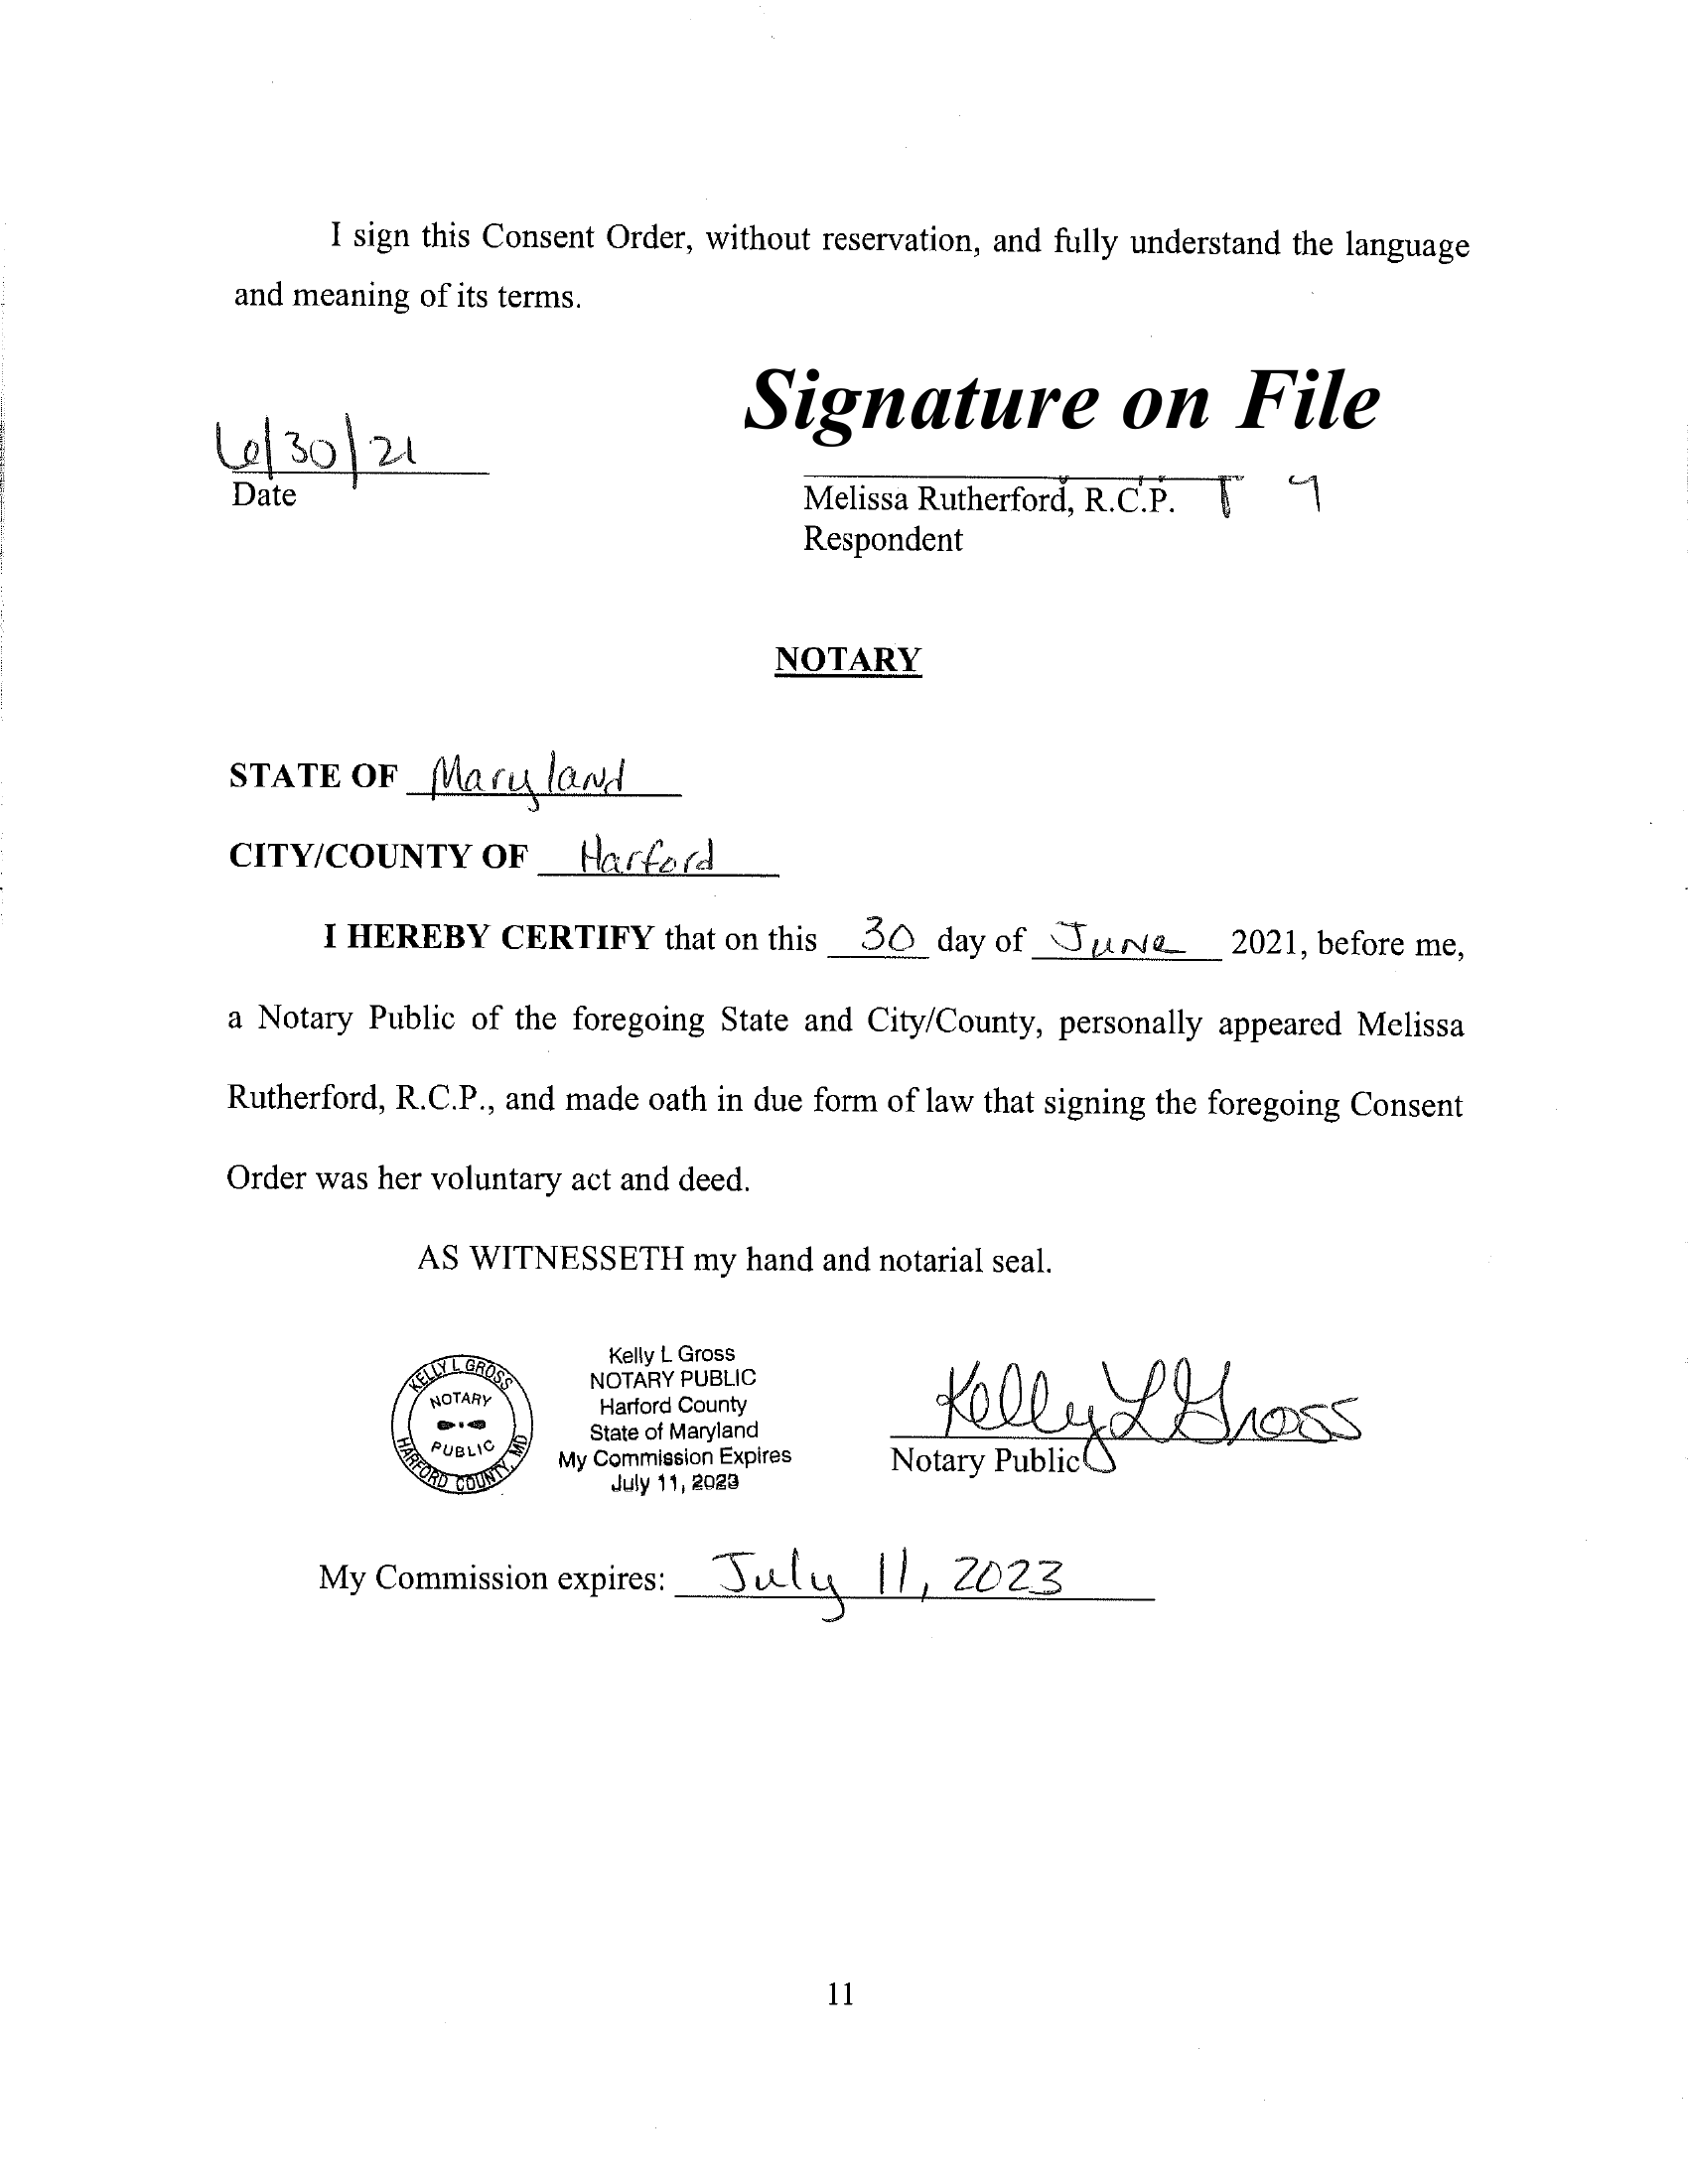 I sign this Consent Order, without reservation, and fully understand the language
and meaning of its terms.
Signature on File
6/30/21
Date
Melissa Rutherford, R.C.P.
Respondent
NOTARY
STATE OF Maryland
CITY/COUNTY OF Harford
I HEREBY CERTIFY that on this 30 day of June 2021, before me,
a Notary Public of the foregoing State and City/County, personally appeared Melissa
Rutherford, R.C.P., and made oath in due form of law that signing the foregoing Consent
Order was her voluntary act and deed.
AS WITNESSETH my hand and notarial seal.
KELLY L GROSS
NOTARY
PUBLIC
HARFORD COUNTY, MD
Kelly L Gross
NOTARY PUBLIC
Harford County
State of Maryland
My Commission Expires
July 11, 2023
Kelly L Gross
Notary Public
My Commission expires: July 11, 2023
11